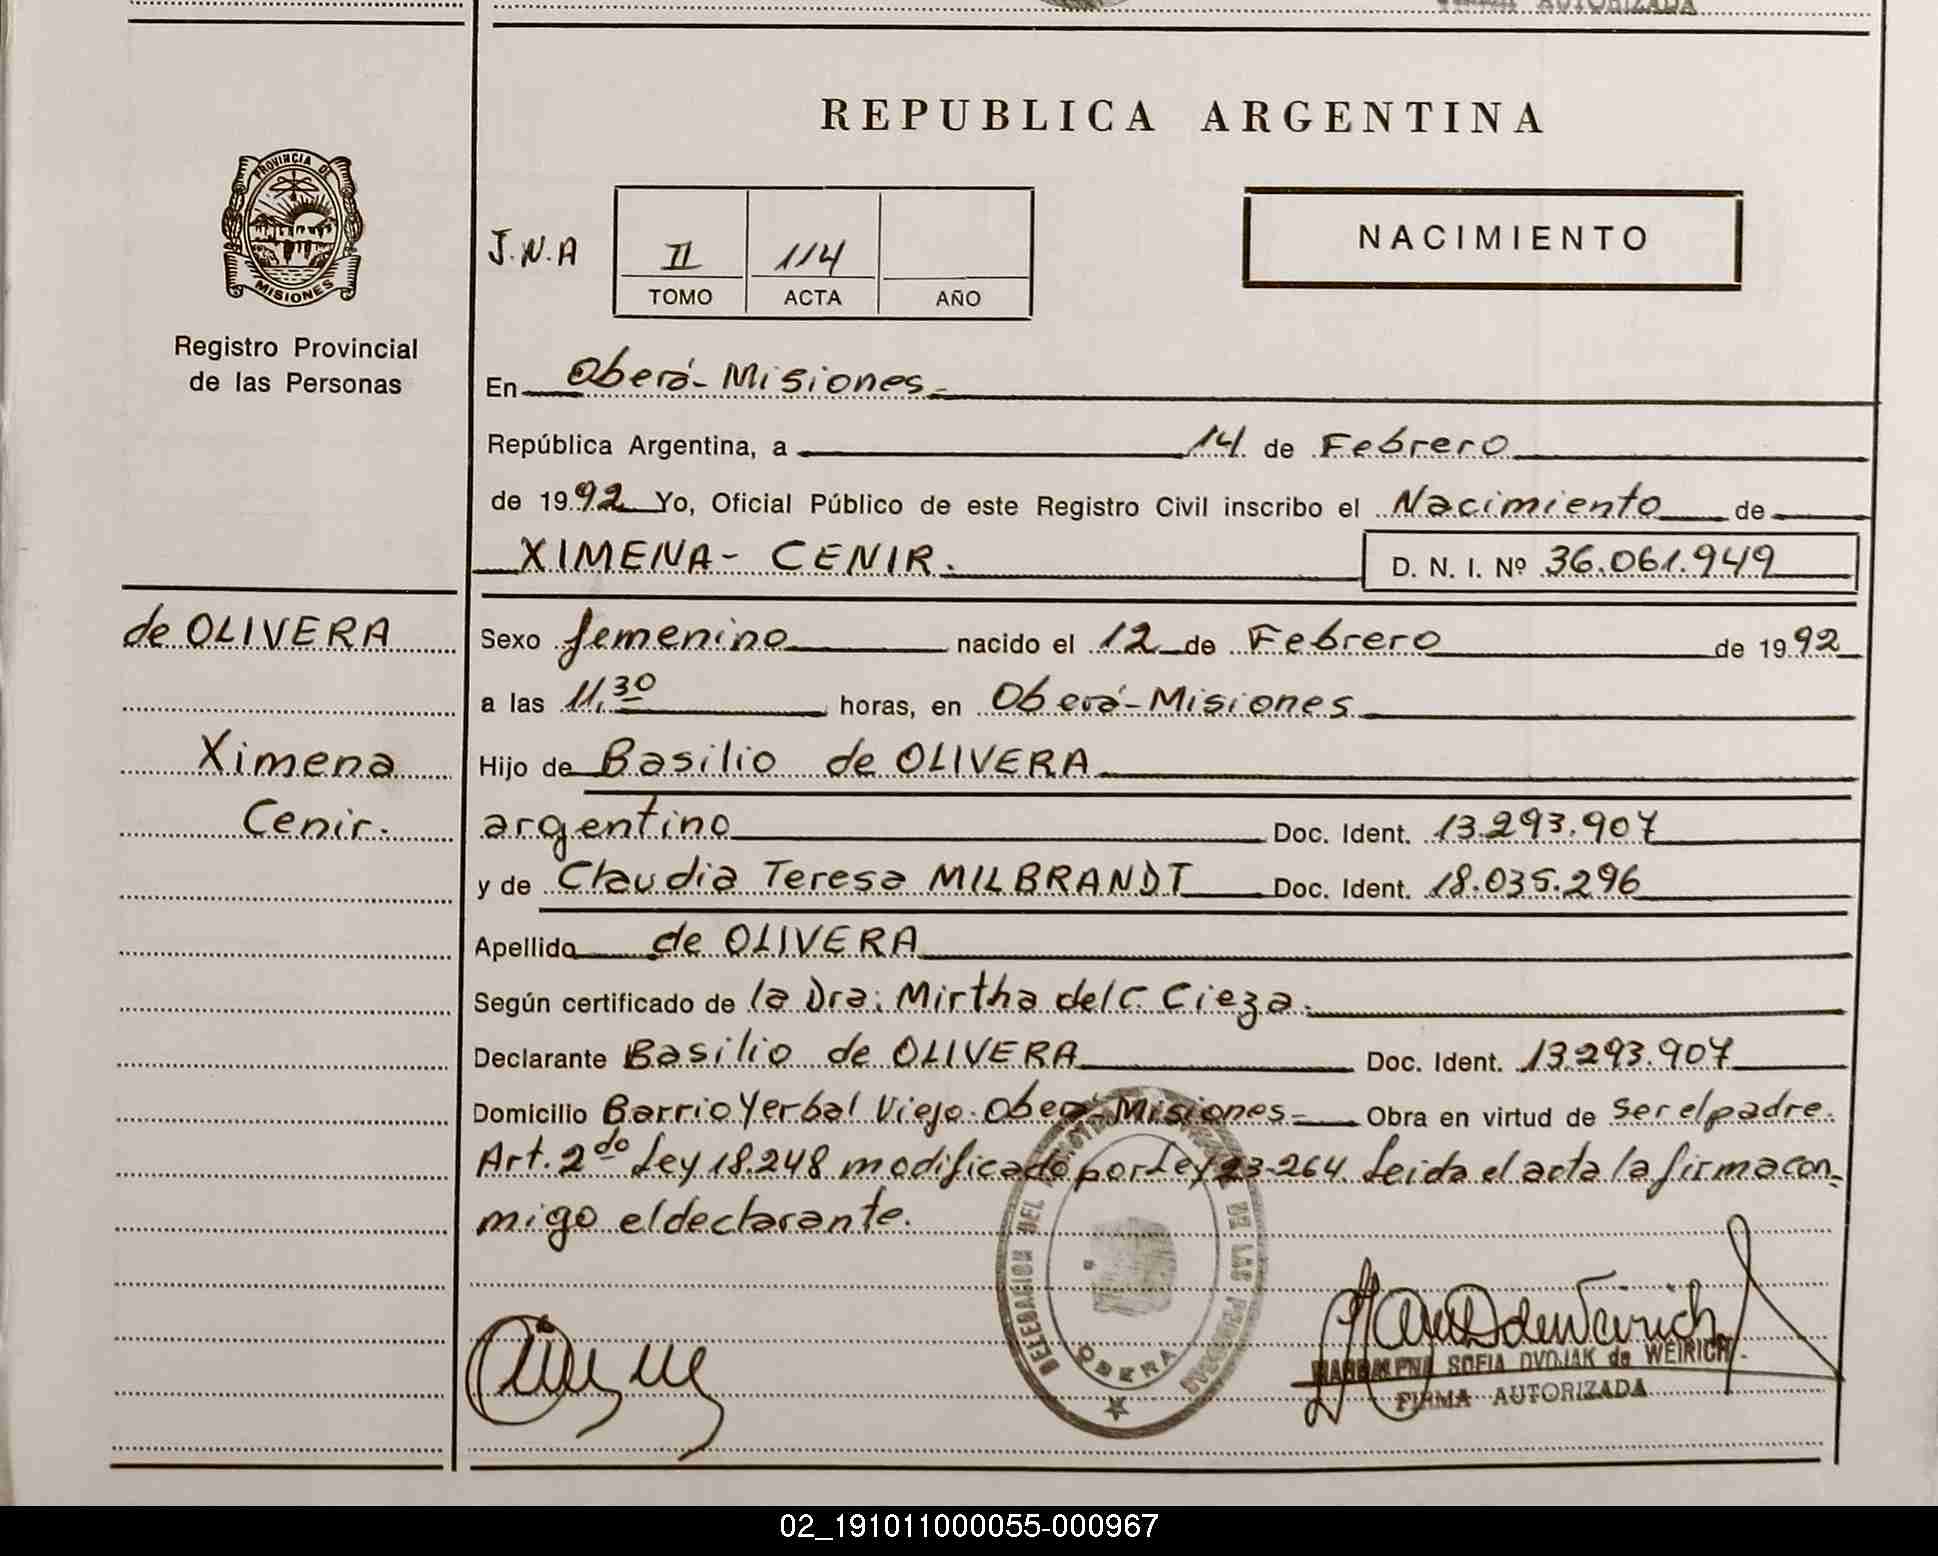 FIRMA AUTORIZADA
REPUBLICA ARGENTINA
PROVINCIA DE
MISIONES
Registro Provincial
de las Personas
J.N.A
II 114
TOMO ACTA AÑO
NACIMIENTO
En Oberá-Misiones-
República Argentina, a 14 de Febrero
de 1992 Yo, Oficial Público de este Registro Civil inscribo el Nacimiento de
XIMENA- CENIR. D. N. I. Nº 36.061.949
de OLIVERA
Ximena
Cenir.
Sexo femenino nacido el 12 de Febrero de 1992
a las 11,30 horas, en Oberá-Misiones
Hijo de Basilio de OLIVERA
argentino Doc. Ident. 13.293.907
y de Claudia Teresa MILBRANDT Doc. Ident. 18.035.296
Apellido de OLIVERA
Según certificado de la Dra. Mirtha del C. Cieza.
Declarante Basilio de OLIVERA Doc. Ident. 13.293.907
Domicilio Barrio Yerbal Viejo. Oberá-Misiones- Obra en virtud de ser el padre.
Art. 2do Ley 18.248 modificado por Ley 23-264. Leida el acta la firma con-
migo el declarante.
DELEGACION DEL DE LAS PERSONAS
OBERA
MAGDALENA SOFIA DVOJAK de WEIRICH
FIRMA AUTORIZADA
02_191011000055-000967